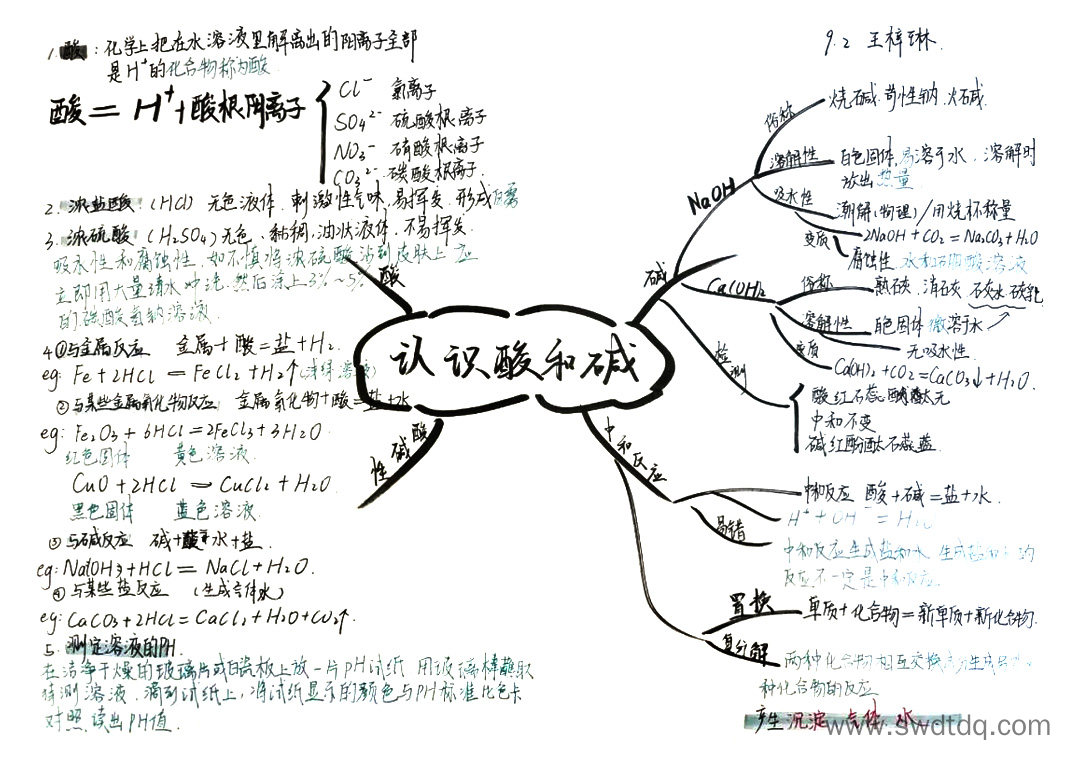 1. 酸：化学上把在水溶液里解离出的阳离子全部
是H⁺的化合物称为酸
酸＝H⁺+酸根阴离子
Cl⁻ 氯离子
SO4²⁻ 硫酸根离子
NO3⁻ 硝酸根离子
CO3²⁻ 碳酸根离子
2. 浓盐酸 (HCl) 无色液体，刺激性气味，易挥发，形成白雾
3. 浓硫酸 (H2SO4) 无色、黏稠，油状液体，不易挥发
吸水性和腐蚀性，如不慎将浓硫酸沾到皮肤上，应
立即用大量清水冲洗，然后涂上3%~5%
的碳酸氢钠溶液.
4.①与金属反应 金属+酸=盐+H2.
eg: Fe+2HCl = FeCl2+H2↑(浅绿溶液)
②与某些金属氧化物反应 金属氧化物+酸=盐+水
eg: Fe2O3+6HCl=2FeCl3+3H2O
红色固体 黄色溶液
CuO+2HCl = CuCl2+H2O
黑色固体 蓝色溶液
③与碱反应 碱+酸=水+盐
eg: NaOH+HCl=NaCl+H2O.
④与某些盐反应 (生成气体水)
eg: CaCO3+2HCl=CaCl2+H2O+CO2↑
5. 测定溶液的PH
在洁净干燥的玻璃片或白瓷板上放一片pH试纸 用玻璃棒蘸取
待测溶液，滴到试纸上，将试纸显示的颜色与PH标准比色卡
对照，读出PH值.
认识酸和碱
酸
酸碱性
9.2 王梓琳.
碱
NaOH
俗称
烧碱.苛性钠.火碱.
溶解性
白色固体，易溶于水，溶解时
放出热量
吸水性
潮解(物理)/用烧杯称量
变质
2NaOH+CO2=Na2CO3+H2O
腐蚀性
Ca(OH)2
俗称
熟石灰、消石灰 石灰水 石灰乳
溶解性
白色固体 微溶于水
无吸水性.
变质
Ca(OH)2+CO2=CaCO3↓+H2O.
检测
酸红石蕊 酚酞无
中和不变
碱红酚酞石蕊蓝
中和反应
中和反应 酸+碱=盐+水.
H⁺+OH⁻=H2O
易错
中和反应生成盐和水 生成盐和水的
反应不一定是中和反应.
置换
单质+化合物=新单质+新化合物
复分解
两种化合物相互交换成分生成另
种化合物的反应
产生沉淀、气体、水
www.swdtdq.com